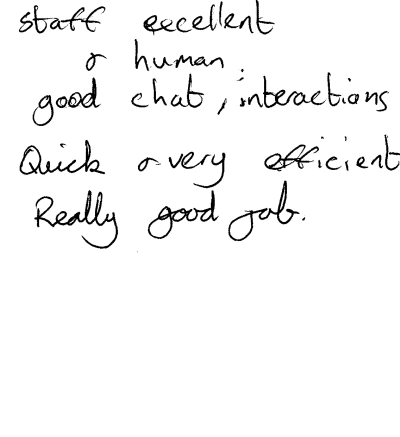 staff excellent
& human.
good chat, interactions
Quick & very efficient
Really good job.